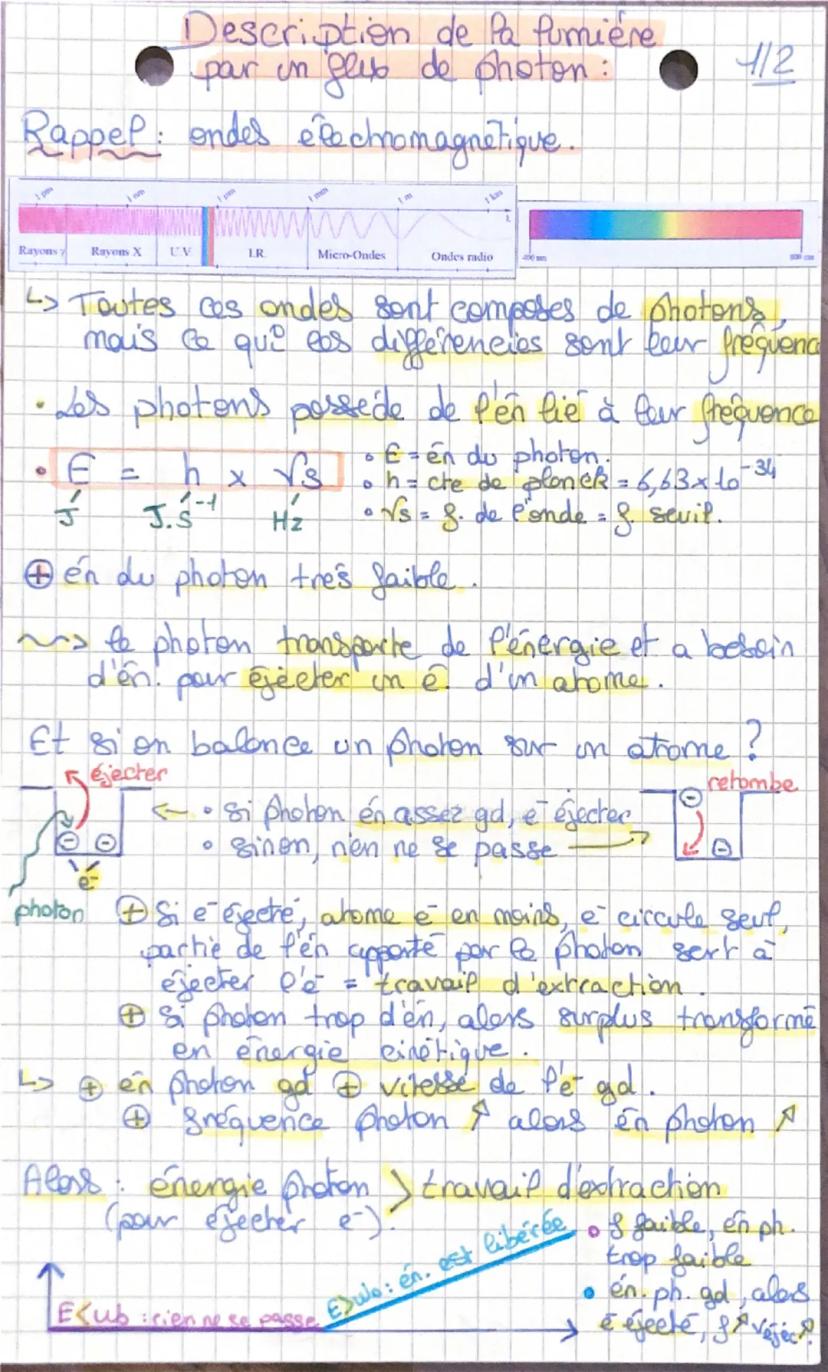 Description de la lumière
par un flux de photon :
1/2
Rappel : ondes électromagnétique.
1 pm 1 nm 1 µm 1 mm 1 m 1 km
Rayons γ Rayons X U.V I.R. Micro-Ondes Ondes radio
400 nm 800 nm
↳ Toutes ces ondes sont composés de photons,
mais ce qui les différencies sont leur fréquenc
• Les photons possède de l'én lié à leur fréquence
• E = h x √s
J J.S⁻¹ Hz
• E = én du photon.
• h = cte de planck = 6,63 x 10⁻³⁴
• √s = f. de l'onde = f. seuil.
⊕ én du photon très faible.
~> le photon transporte de l'énergie et a besoin
d'én. pour éjecter un e⁻ d'un atome.
Et si on balance un photon sur un atome ?
éjecter
photon
e⁻
← • si photon én assez gd, e⁻ éjecter
• sinon, rien ne se passe →
retombe
⊕ Si e⁻ éjecté, atome e⁻ en moins, e⁻ circule seul,
partie de l'én apporté par le photon sert à
éjecter l'e⁻ = travail d'extraction.
⊕ si photon trop d'én, alors surplus transformé
en énergie cinétique.
↳ ⊕ én photon gd ⊕ vitesse de l'e⁻ gd.
⊕ fréquence photon ↗ alors én photon ↗
Alors : énergie photon > travail d'extraction
(pour éjecter e⁻).
E<Wo : rien ne se passe
E>Wo : én. est libérée
• f faible, én ph.
trop faible
• én. ph. gd, alors
e⁻ éjecté, f ↗ véjec ↗.